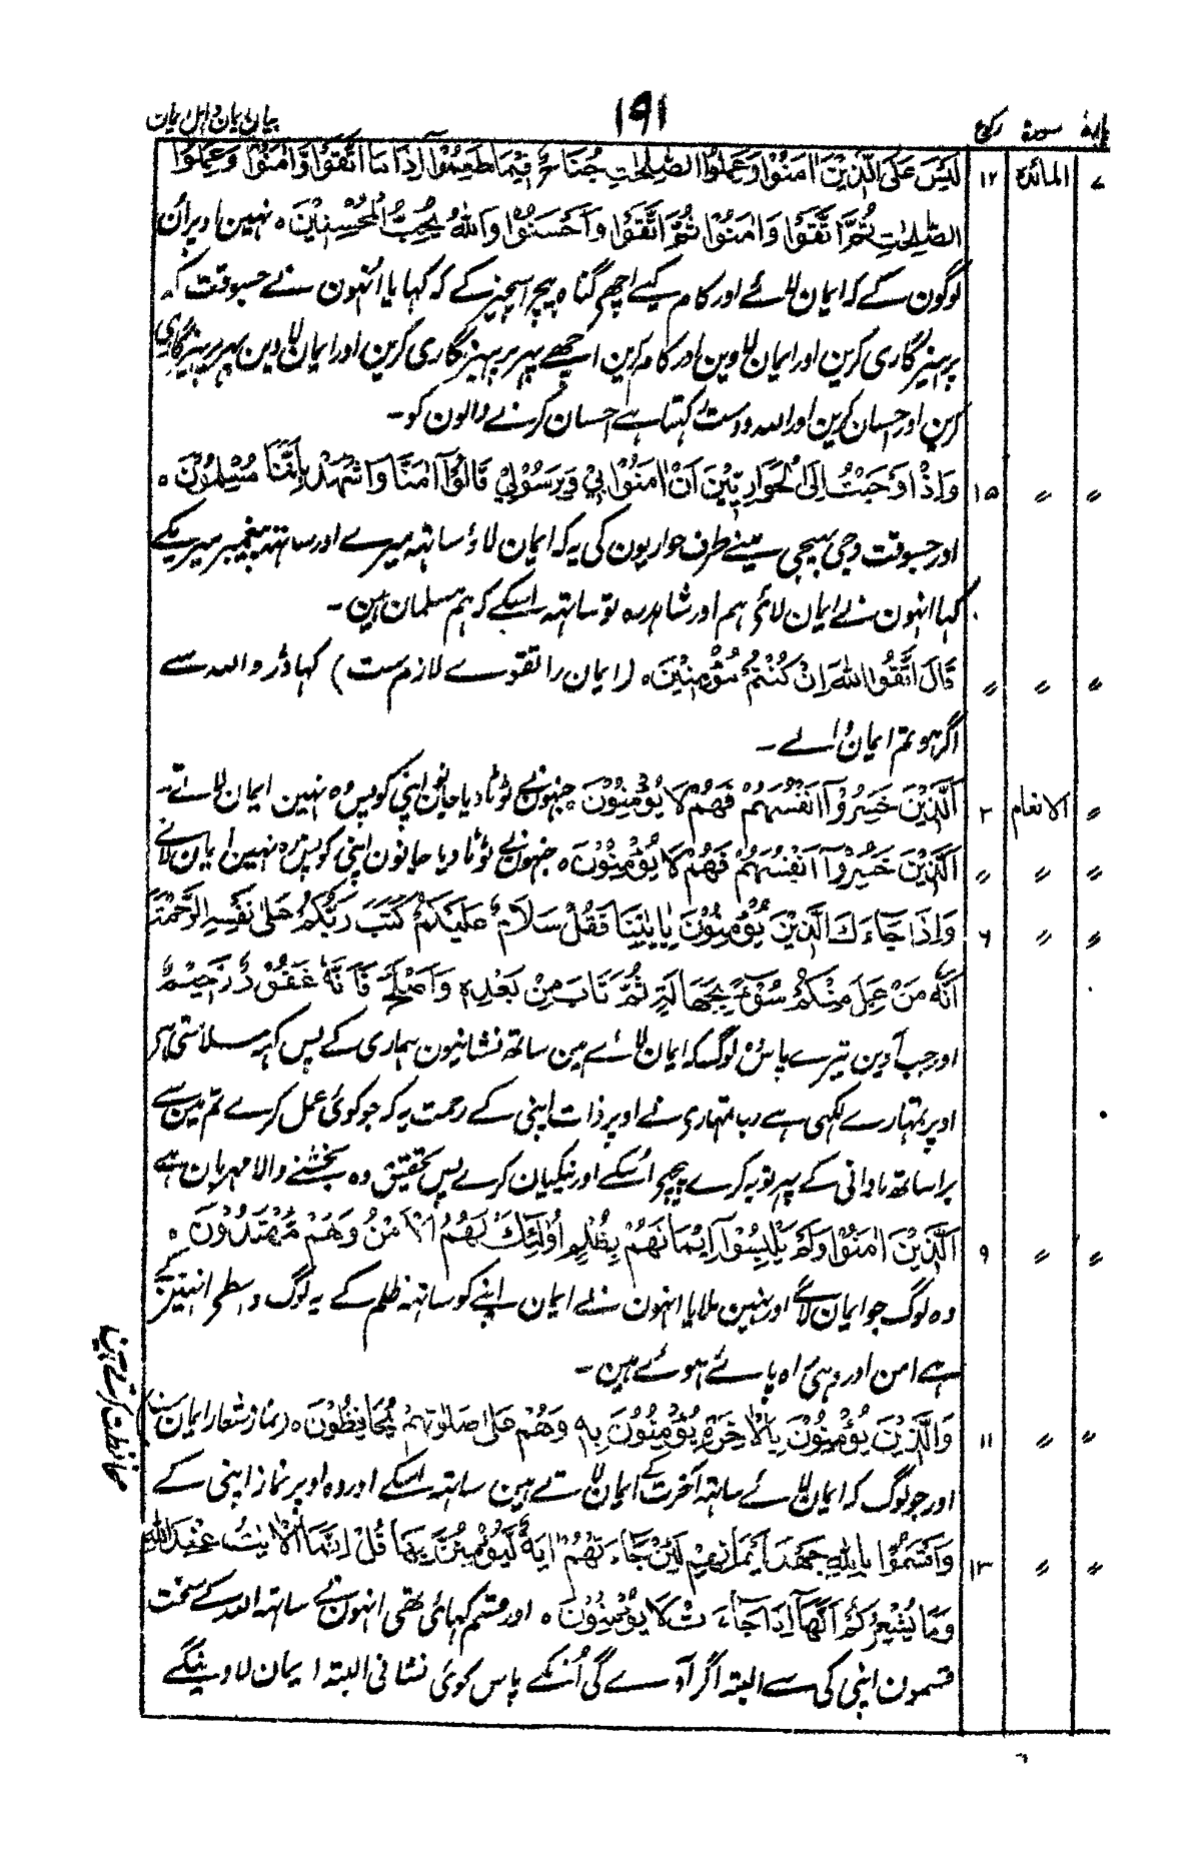 پارہ سورۃ رکوع
۱۹۱
بیان ایمان و اہل ایمان
۷ المائدہ ۱۲ لَيْسَ عَلَى الَّذِيْنَ اٰمَنُوْا وَعَمِلُوا الصّٰلِحٰتِ جُنَاحٌ فِيْمَا طَعِمُوْٓا اِذَا مَا اتَّقَوْا وَّاٰمَنُوْا وَعَمِلُوا
الصّٰلِحٰتِ ثُمَّ اتَّقَوْا وَاٰمَنُوْا ثُمَّ اتَّقَوْا وَاَحْسَنُوْا وَاللّٰهُ يُحِبُّ الْمُحْسِنِيْنَ ہ نہین اوپر ان
لوگون کے کہ ایمان لائے اور کام کیے اچھے گناہ بیچ اسچیز کے کہ کہایا انہون نے جسوقت کہ
پرہیزگاری کرین اور ایمان لاوین اور کام کرین اچھے پہر پرہیزگاری کرین اور ایمان لاوین پہر پرہیزگاری
کرین اور احسان کرین اور اللہ دوست رکہتا ہے احسان کرنے والون کو۔
〃 〃 ۱۵ وَاِذْ اَوْحَيْتُ اِلَى الْحَوَارِيّٖنَ اَنْ اٰمِنُوْا بِيْ وَبِرَسُوْلِيْ قَالُوْٓا اٰمَنَّا وَاشْهَدْ بِاَنَّنَا مُسْلِمُوْنَ ہ
اور جسوقت وحی بہیجی مینے طرف حواریون کی یہ کہ ایمان لاؤ ساتھہ میرے اور ساتھہ پیغمبر میریکے
کہا انہون نے ایمان لائے ہم اور شاہد رہ تو ساتھہ اسکے کہ ہم مسلمان ہین۔
〃 〃 〃 قَالَ اتَّقُوا اللّٰهَ اِنْ كُنْتُمْ مُّؤْمِنِيْنَ ہ (ایمان را تقوے لازم ست) کہا ڈرو اللہ سے
اگر ہو تم ایمان والے۔
〃 الانعام ۲ اَلَّذِيْنَ خَسِرُوْٓا اَنْفُسَهُمْ فَهُمْ لَا يُؤْمِنُوْنَ جنہونے ٹوٹا دیا جانون اپنی کو پس وہ نہین ایمان لاتے۔
〃 〃 〃 اَلَّذِيْنَ خَسِرُوْٓا اَنْفُسَهُمْ فَهُمْ لَا يُؤْمِنُوْنَ ہ جنہونے ٹوٹا دیا جانون اپنی کو پس وہ نہین ایمان لاتے
〃 〃 ۶ وَاِذَا جَآءَكَ الَّذِيْنَ يُؤْمِنُوْنَ بِاٰيٰتِنَا فَقُلْ سَلَامٌ عَلَيْكُمْ كَتَبَ رَبُّكُمْ عَلٰى نَفْسِهِ الرَّحْمَةَ
اَنَّهٗ مَنْ عَمِلَ مِنْكُمْ سُوْٓءًۢ بِجَهَالَةٍ ثُمَّ تَابَ مِنْ بَعْدِهٖ وَاَصْلَحَ فَاَنَّهٗ غَفُوْرٌ رَّحِيْمٌ
اور جب آوین تیرے پاس وہ لوگ کہ ایمان لائے ہین ساتھ نشانیون ہماری کے پس کہہ سلامتی ہے
اوپر تمہارے لکہی ہے رب تمہاری نے اوپر ذات اپنی کے رحمت یہ کہ جو کوئی عمل کرے تم مین سے
برا ساتھ نادانی کے پہر توبہ کرے پیچہے اسکے اور نیکیان کرے پس تحقیق وہ بخشنے والا مہربان ہے
〃 〃 ۹ اَلَّذِيْنَ اٰمَنُوْا وَلَمْ يَلْبِسُوْٓا اِيْمَانَهُمْ بِظُلْمٍ اُولٰٓئِكَ لَهُمُ الْاَمْنُ وَهُمْ مُّهْتَدُوْنَ ہ
وہ لوگ جو ایمان لائے اور نہین ملایا انہون نے ایمان اپنے کو ساتھہ ظلم کے یہ لوگ واسطے انہین کے
ہے امن اور وہی راہ پائے ہوئے ہین۔
〃 〃 ۱۱ وَالَّذِيْنَ يُؤْمِنُوْنَ بِالْاٰخِرَةِ يُؤْمِنُوْنَ بِهٖ وَهُمْ عَلٰى صَلَوتِهِمْ يُحَافِظُوْنَ ہ (نماز شعار ایمان ست)
اور جو لوگ کہ ایمان لائے ساتھہ آخرت کے ایمان لاتے ہین ساتھہ اسکے اور وہ اوپر نماز اپنی کے
محافظت کرتے ہین
〃 〃 ۱۳ وَاَقْسَمُوْا بِاللّٰهِ جَهْدَ اَيْمَانِهِمْ لَئِنْ جَآءَتْهُمْ اٰيَةٌ لَّيُؤْمِنُنَّ بِهَا قُلْ اِنَّمَا الْاٰيٰتُ عِنْدَ اللّٰهِ
وَمَا يُشْعِرُكُمْ اَنَّهَآ اِذَا جَآءَتْ لَا يُؤْمِنُوْنَ ہ اور قسم کہائی تہی انہون نے ساتھہ اللہ کے سخت
قسمون اپنی کی سے البتہ اگر آوے گی اُنکے پاس کوئی نشانی البتہ ایمان لاوینگے